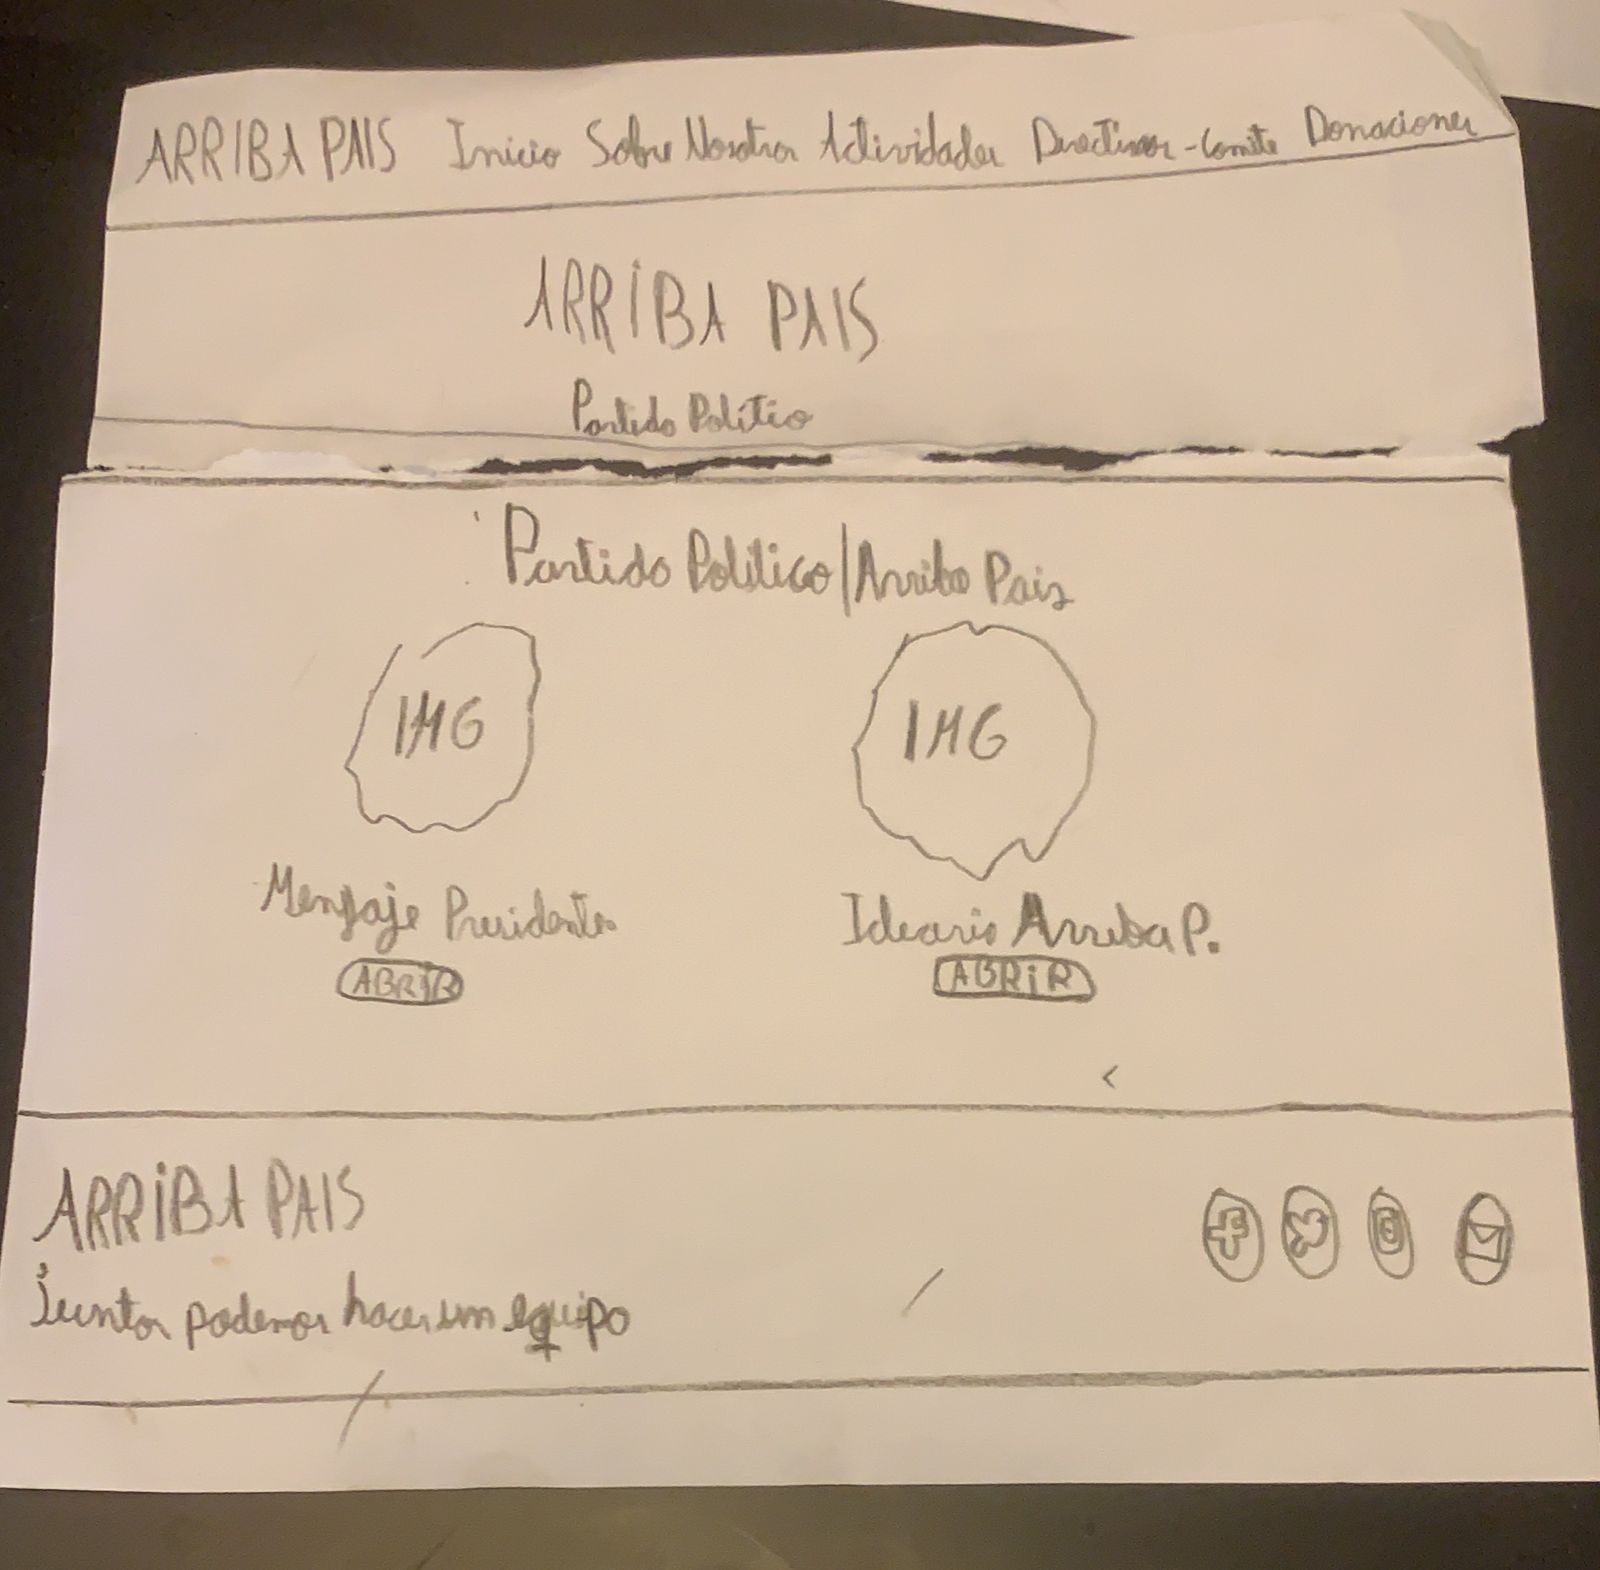 ARRIBA PAIS Inicio Sobre Nosotros Actividades Directivos-Comite Donaciones
ARRIBA PAIS
Partido Politio
Partido Politico/Arriba Pais
IMG IMG
Mensaje Presidente Ideario Arriba P.
ABRIR ABRIR
ARRIBA PAIS
Juntos podemos hacer un equipo